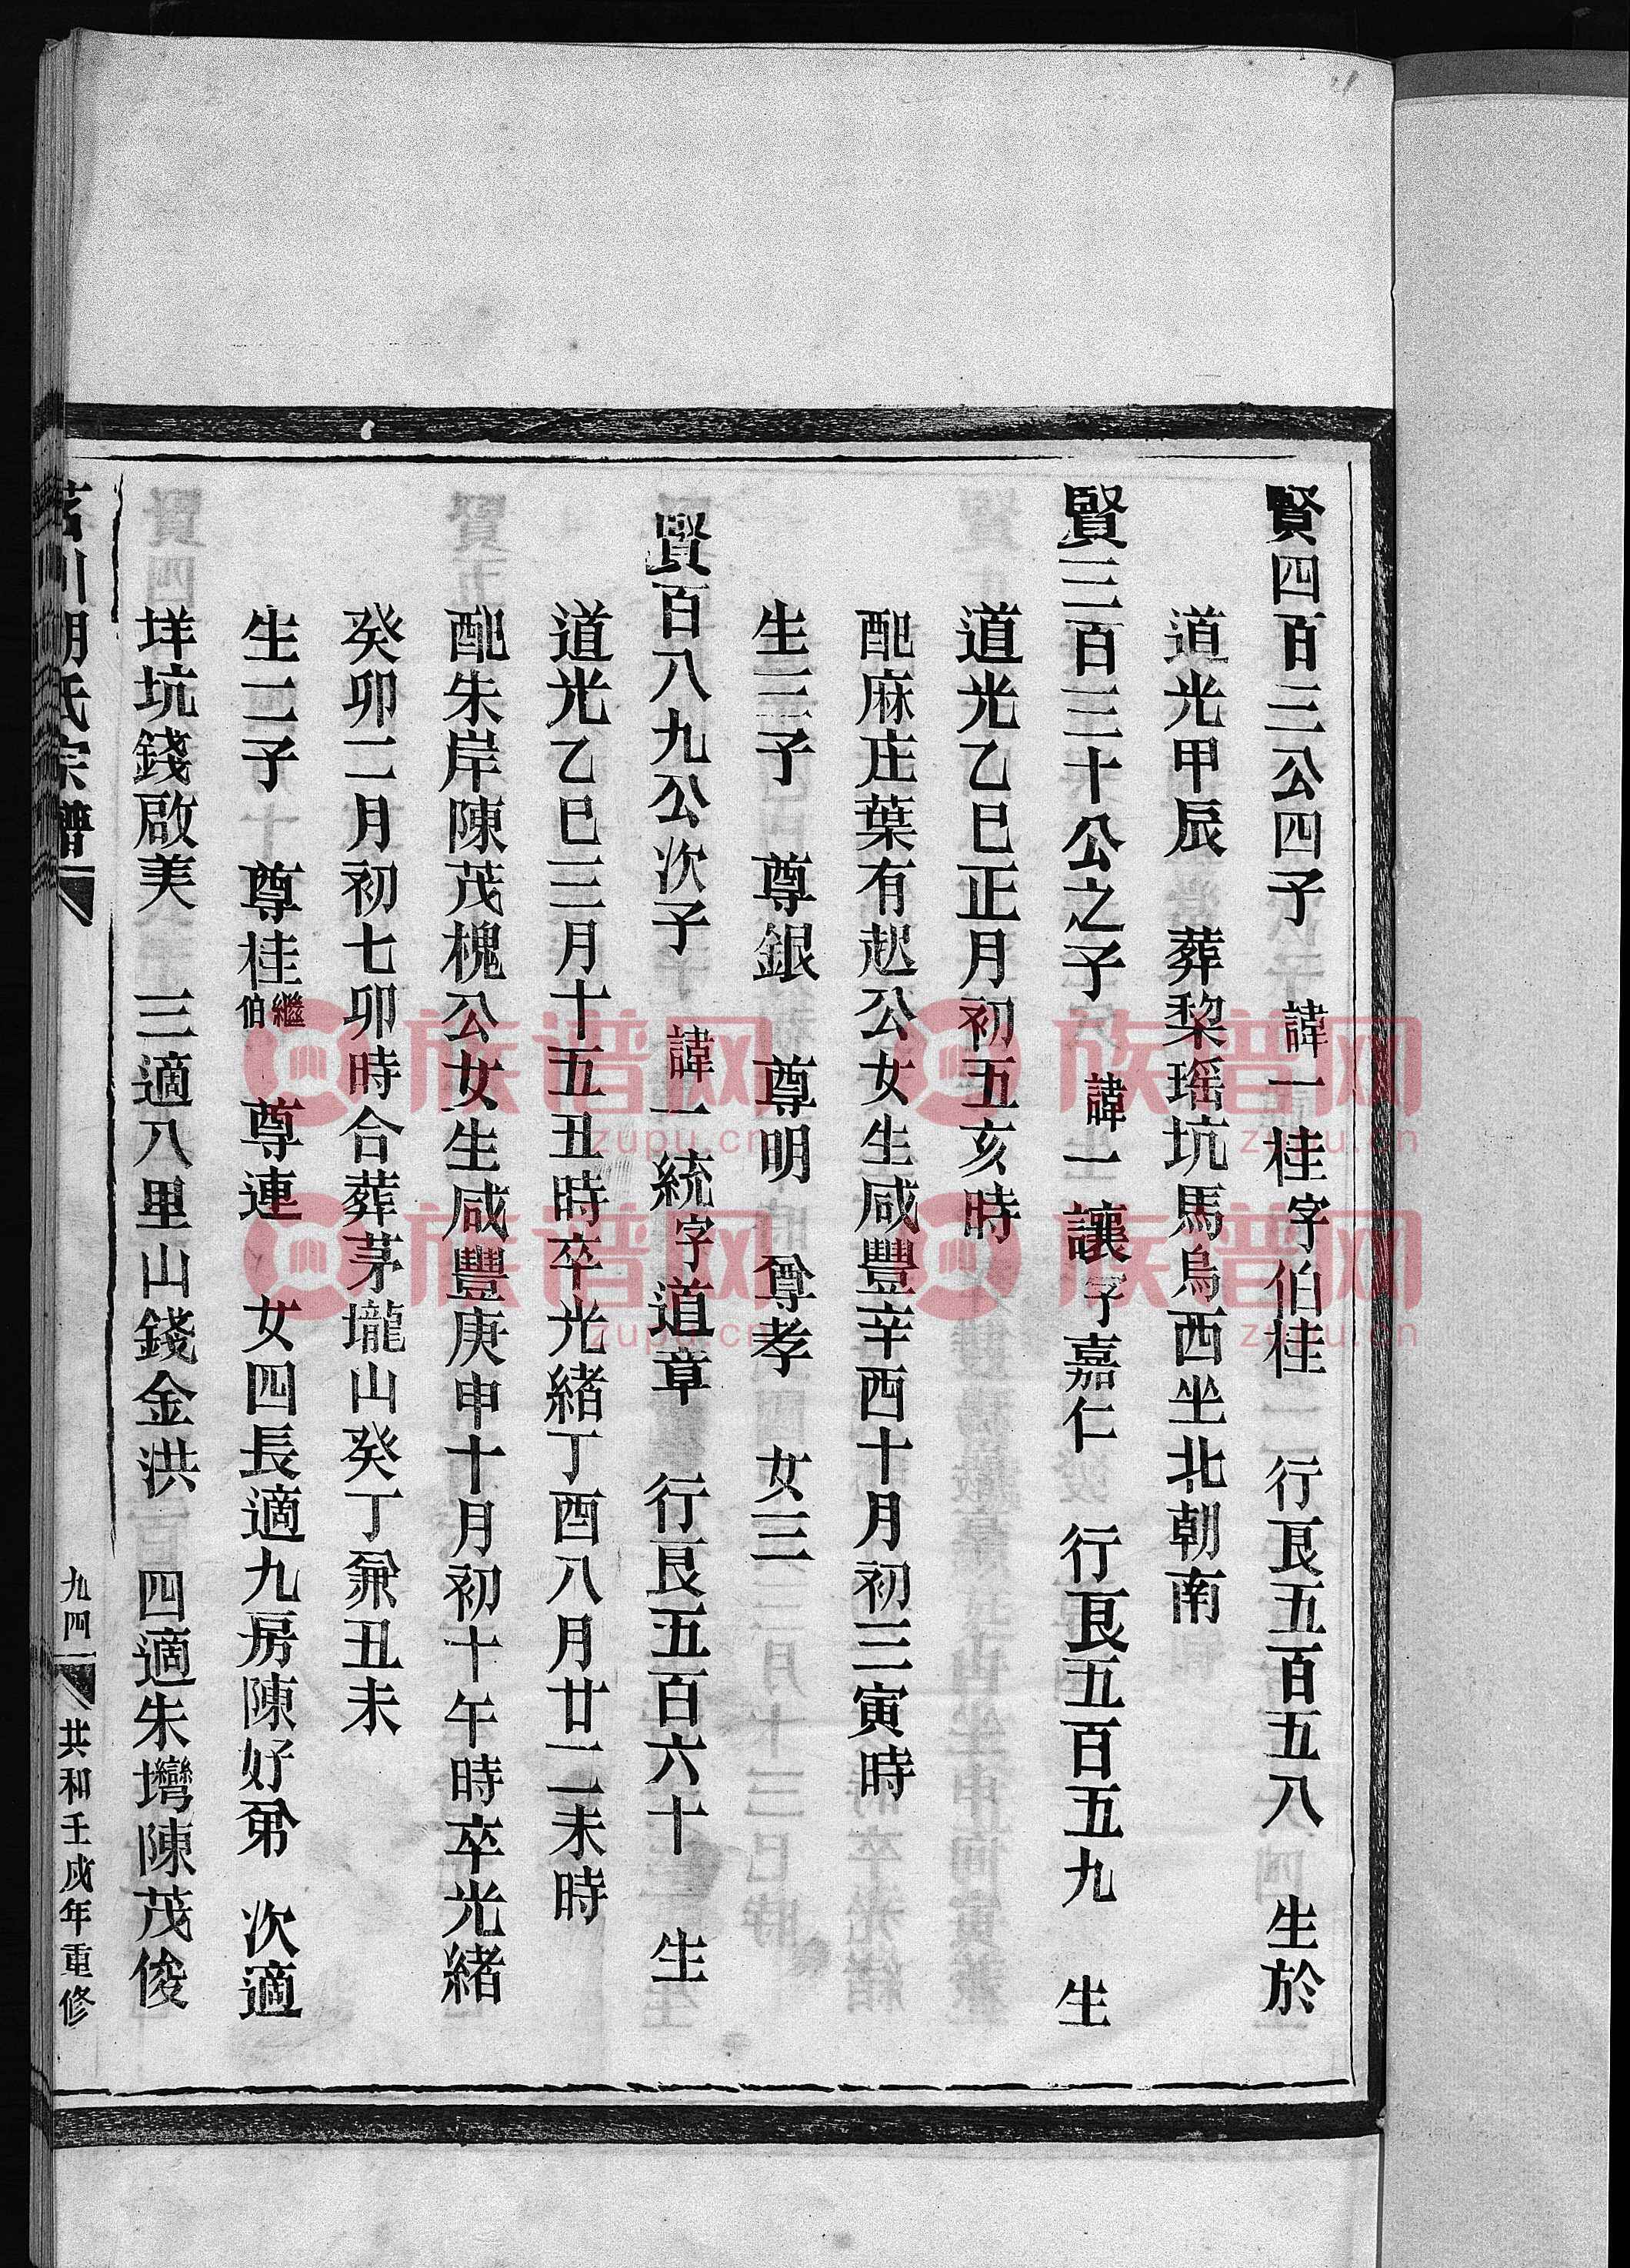 賢四百三公四子　諱一桂字伯桂　行艮五百五八　生於
道光甲辰　葬棃瑶坑馬鳥西坐北朝南
賢三百三十公之子　諱一讓字嘉仁　行艮五百五九　生
道光乙巳正月初五亥時
配麻庄葉有起公女生咸豐辛酉十月初三寅時
生三子　尊銀　尊明　尊孝　女三
賢百八九公次子　諱一統字道章　行艮五百六十　生
道光乙巳三月十五丑時卒光緒丁酉八月廿二未時
配朱岸陳茂槐公女生咸豐庚申十月初十午時卒光緒
癸卯二月初七卯時合葬茅壠山癸丁兼丑未
生二子　尊桂繼伯　尊連　女四長適九房陳好弟　次適
垟坑錢啟美　三適八里山錢金洪　四適朱塆陳茂俊
茗川胡氏宗譜
九四
共和壬戌年重修
族谱网
zupu.cn
族谱网
zupu.cn
族谱网
zupu.cn
族谱网
zupu.cn